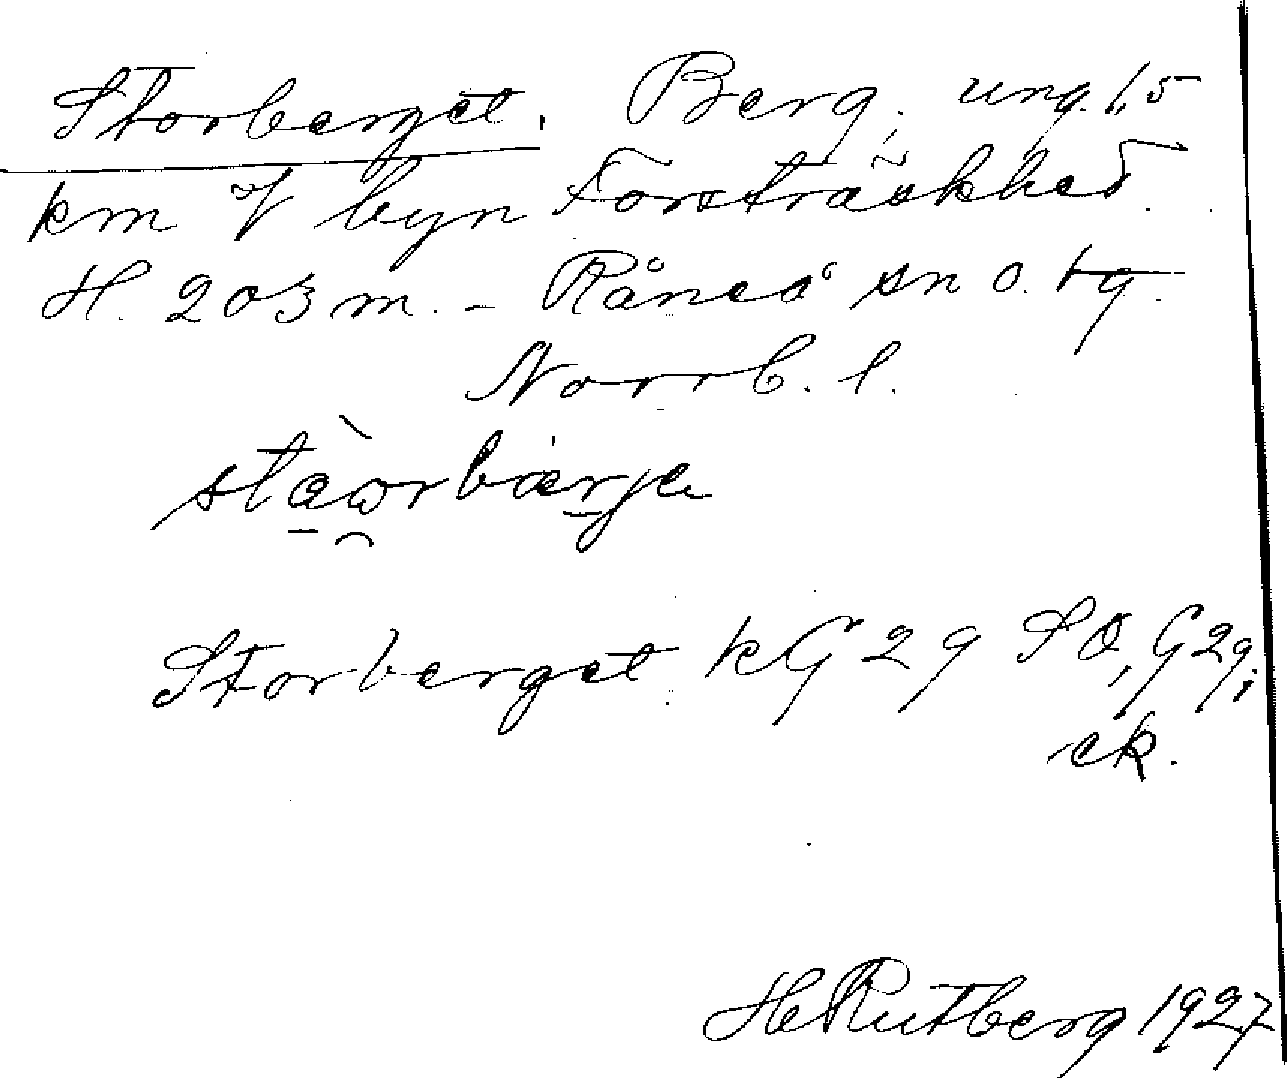 Storberget. Berg, ung. 1,5
km V byn Forsträskhed.
H. 203 m. - Råneå sn o. tg.
Norrb. l.
Storberget kG 29 SO, G 29;
ek.
H Rutberg 1927